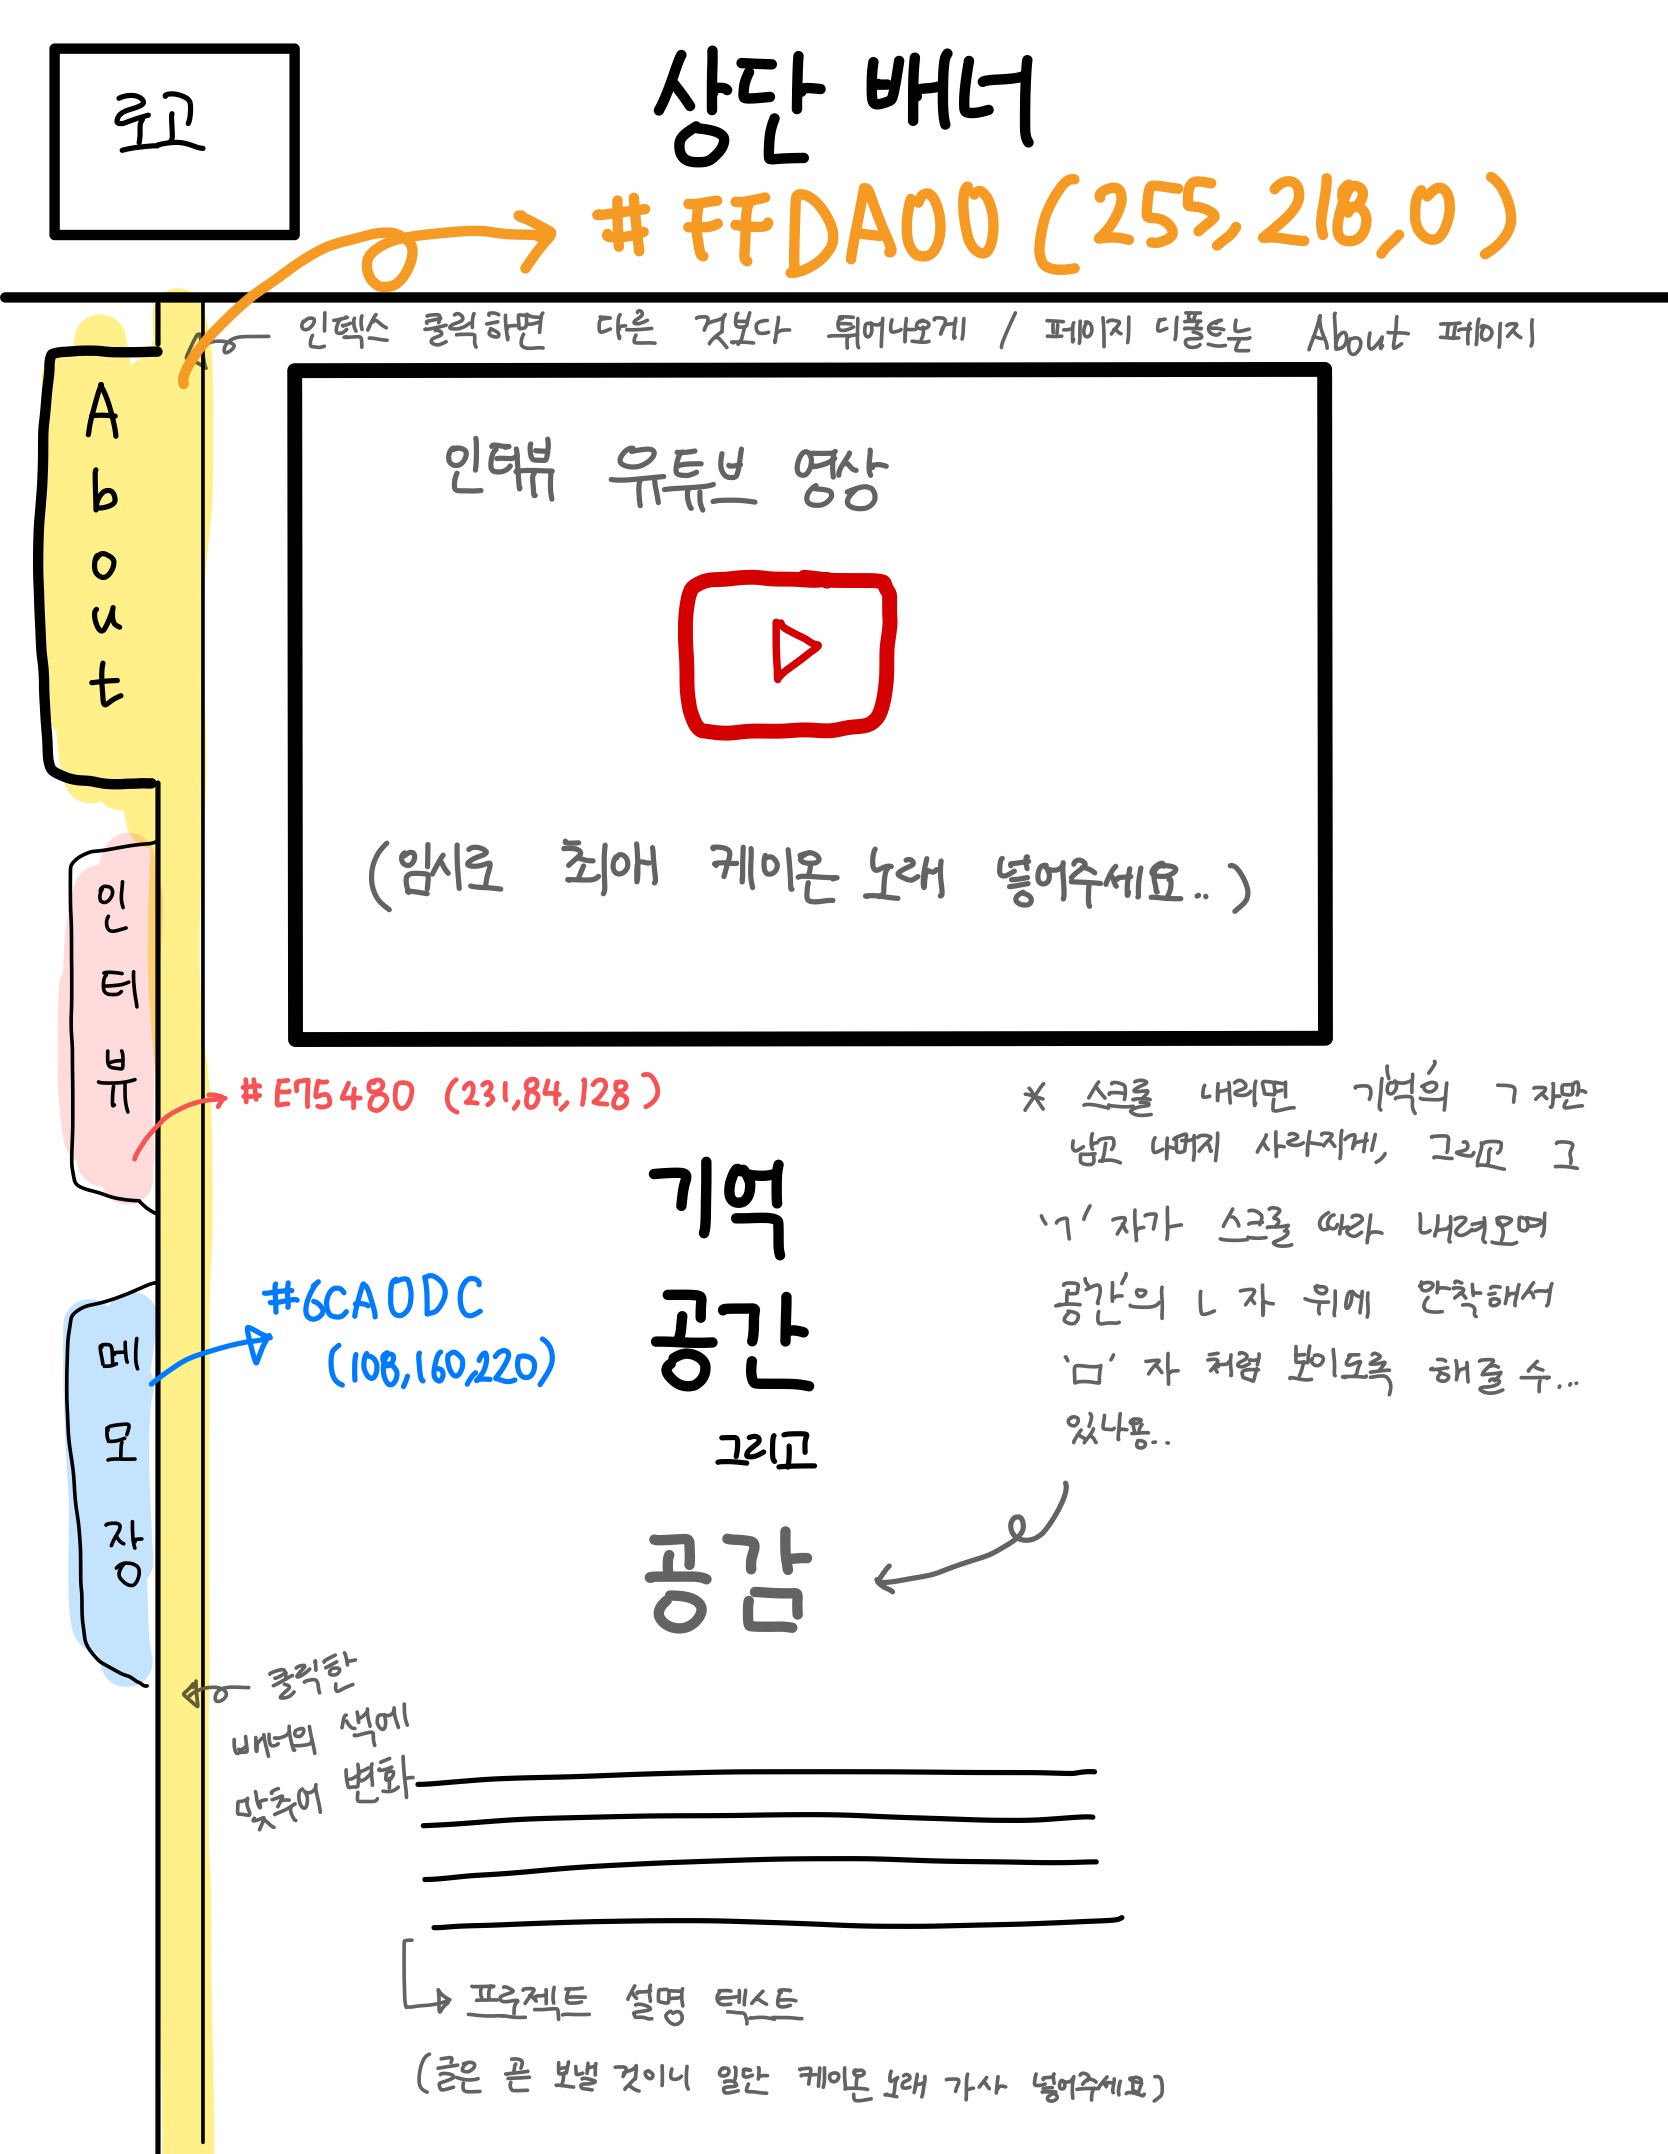 로고
상단 배너
#FFDA00 (255,218,0)
인덱스 클릭하면 다른 것보다 튀어나오게 / 페이지 디폴트는 About 페이지
About
인터뷰 유튜브 영상
(임시로 최애 케이온 노래 넣어주세요..)
인터뷰
#E75480 (231,84,128)
* 스크롤 내리면 '기억'의 ㄱ자만
남고 나머지 사라지게, 그리고 그
'ㄱ' 자가 스크롤 따라 내려오며
'공간'의 ㄴ 자 위에 안착해서
'ㅁ' 자 처럼 보이도록 해줄 수...
있나용..
기억
공간
그리고
공감
#6CA0DC
(108,160,220)
메모장
클릭한
배너의 색에
맞추어 변화
프로젝트 설명 텍스트
(글은 곧 보낼 것이니 일단 케이온 노래 가사 넣어주세요)